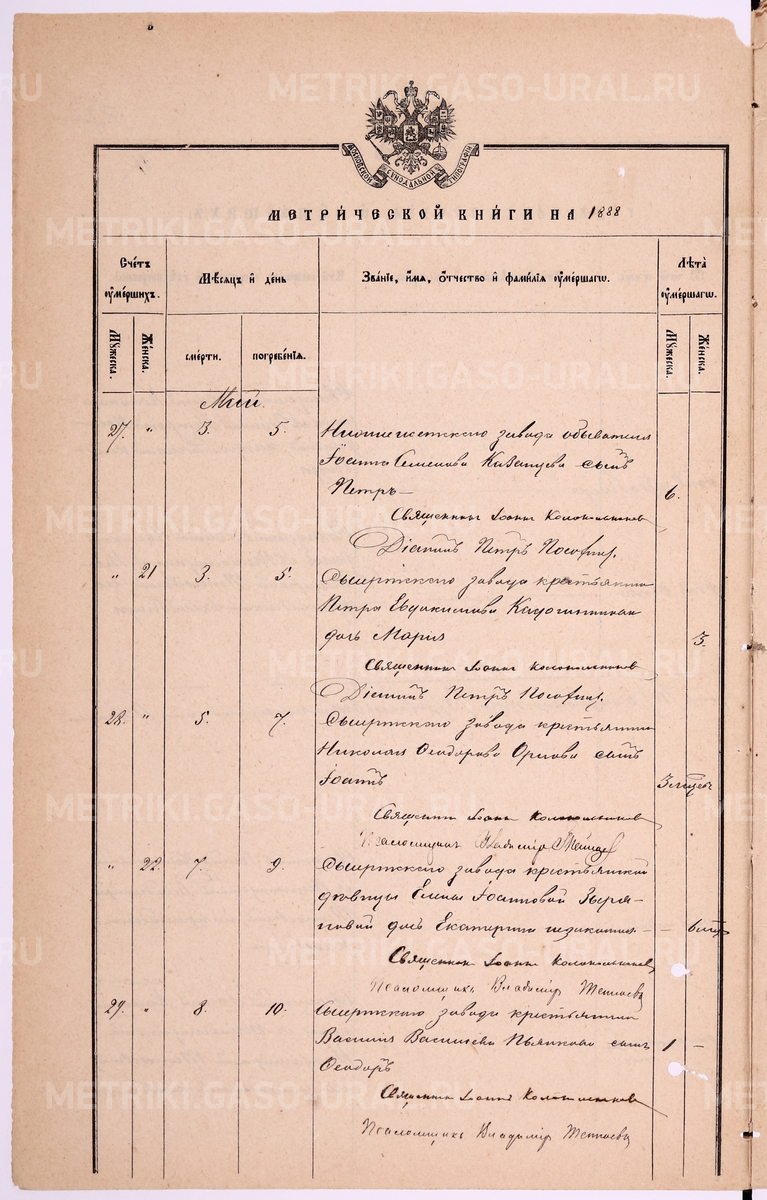 МОСКОВСКОЙ СѴНОДАЛЬНОЙ ТИПОГРАФІИ
МЕТРИ́ЧЕСКОЙ КНИ́ГИ НА 1888
Сче́тъ ᲂу҆ме́ршихъ.
Мѣ́сяцъ и҆ де́нь
Зва́нїе, и҆́мя, ѻ҆́тчество и҆ фамі́лїя ᲂу҆ме́ршагѡ.
Лѣта̀ ᲂу҆ме́ршагѡ.
Мꙋ́жеска.
Же́нска.
сме́рти.
погребе́нїя.
Мꙋ́жеска.
Же́нска.
Май.
27. " 3. 5. завода обывателя
Іоанна Семенова Казанцева сынъ
Петръ— 6.
Священникъ Іоаннъ Колокольниковъ
Діаконъ Петръ
" 21 3. 5. Сысертскаго завода крестьянина
Петра Евдокимова
дочь Марія 3.
Священникъ Іоаннъ Колокольниковъ
Діаконъ Петръ
28. " 5. 7. Сысертскаго завода крестьянина
Николая Ѳеодорова Орлова сынъ
Іоаннъ 3 месец.
Священникъ Іоаннъ Колокольниковъ
Псаломщикъ Владиміръ
" 22. 7. 9. Сысертскаго завода крестьянской
дѣвицы Елены Іоанновой Зыря-
новой дочь Екатерина незаконная – –
Священникъ Іоаннъ Колокольниковъ
Псаломщикъ Владиміръ
29. " 8. 10. Сысертскаго завода крестьянина
Василія Васильева Пьянкова сынъ 1 –
Ѳеодоръ
Священникъ Іоаннъ Колокольниковъ
Псаломщикъ Владиміръ
METRIKI.GASO-URAL.RU